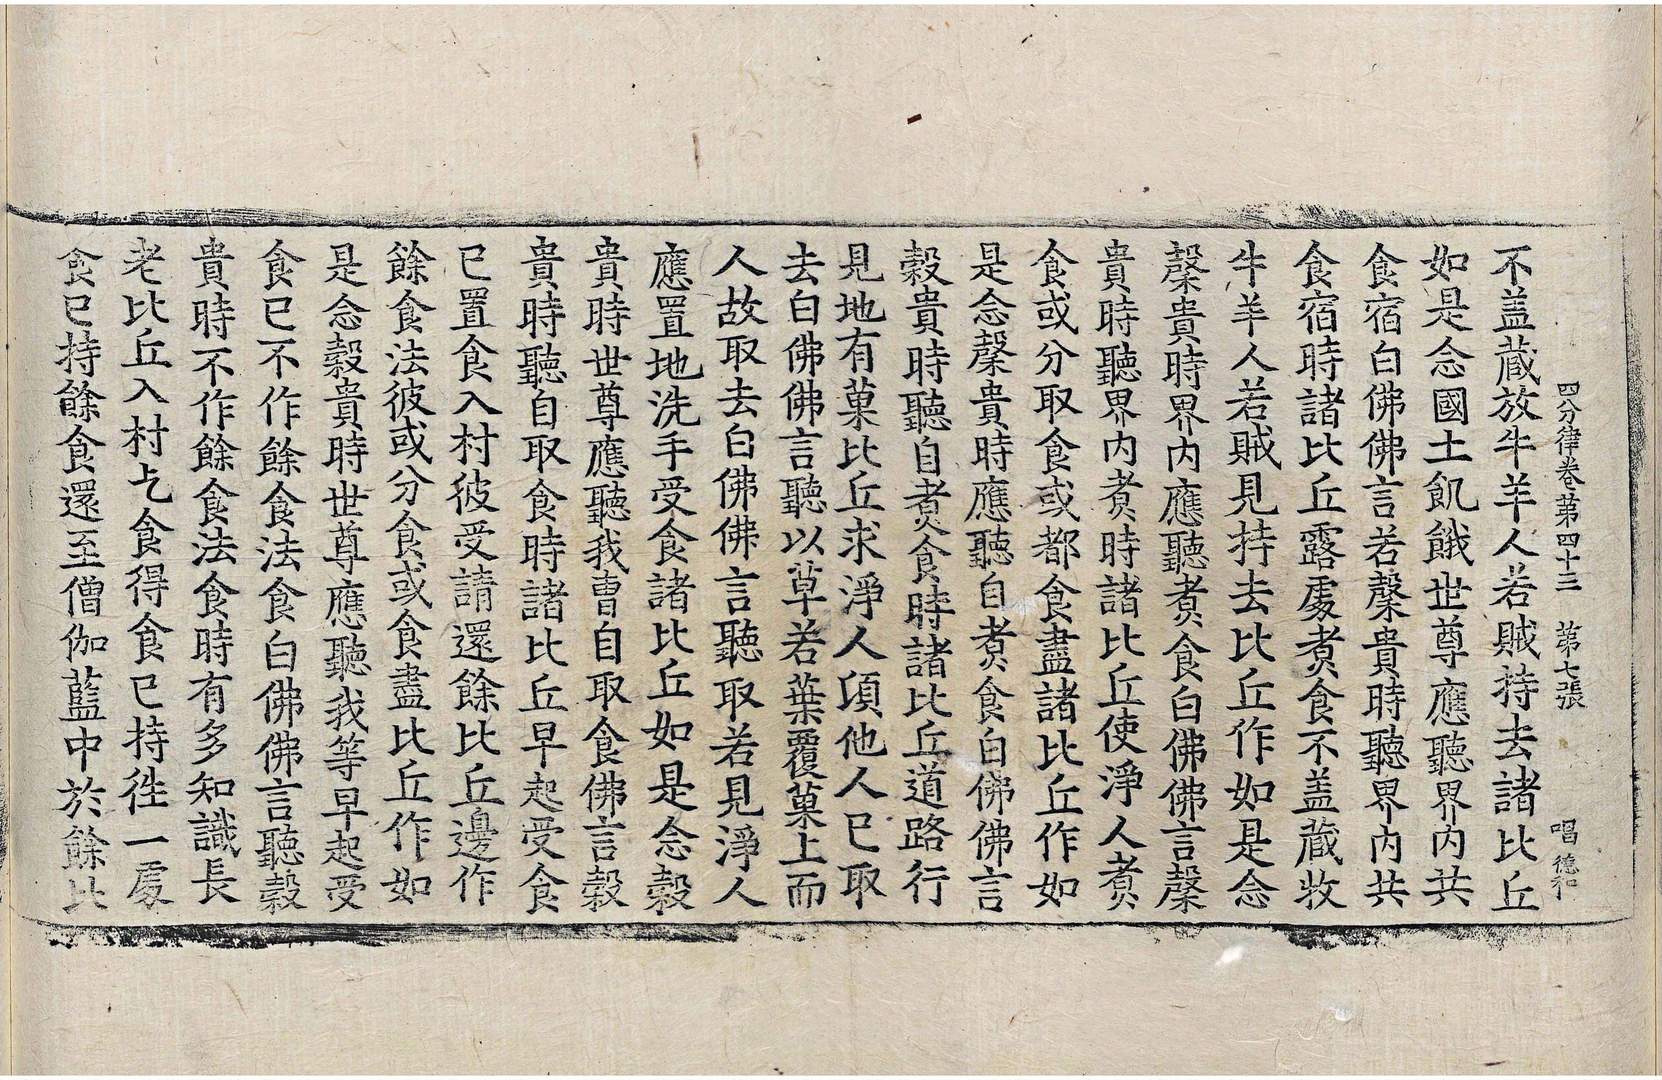 四分律卷第四十三　第七張　唱　德和
不盖蔵放牛羊人若賊持去諸比丘
如是念國土飢餓世尊應聽界内共
食宿白佛佛言若糓貴時聽界内共
食宿時諸比丘露處煮食不盖蔵牧
牛羊人若賊見持去比丘作如是念
糓貴時界内應聽煮食白佛佛言糓
貴時聽界内煮時諸比丘使淨人煮
食或分取食或都食盡諸比丘作如
是念糓貴時應聽自煮食白佛佛言
糓貴時聽自煮食時諸比丘道路行
見地有菓比丘求淨人頃他人已取
去白佛佛言聽以草若葉覆菓上而
人故取去白佛佛言聽取若見淨人
應置地洗手受食諸比丘如是念糓
貴時世尊應聽我曹自取食佛言糓
貴時聽自取食時諸比丘早起受食
已置食入村彼受請還餘比丘邊作
餘食法彼或分食或食盡比丘作如
是念糓貴時世尊應聽我等早起受
食已不作餘食法食白佛佛言聽糓
貴時不作餘食法食時有多知識長
老比丘入村乞食得食已持徃一處
食已持餘食還至僧伽藍中於餘比